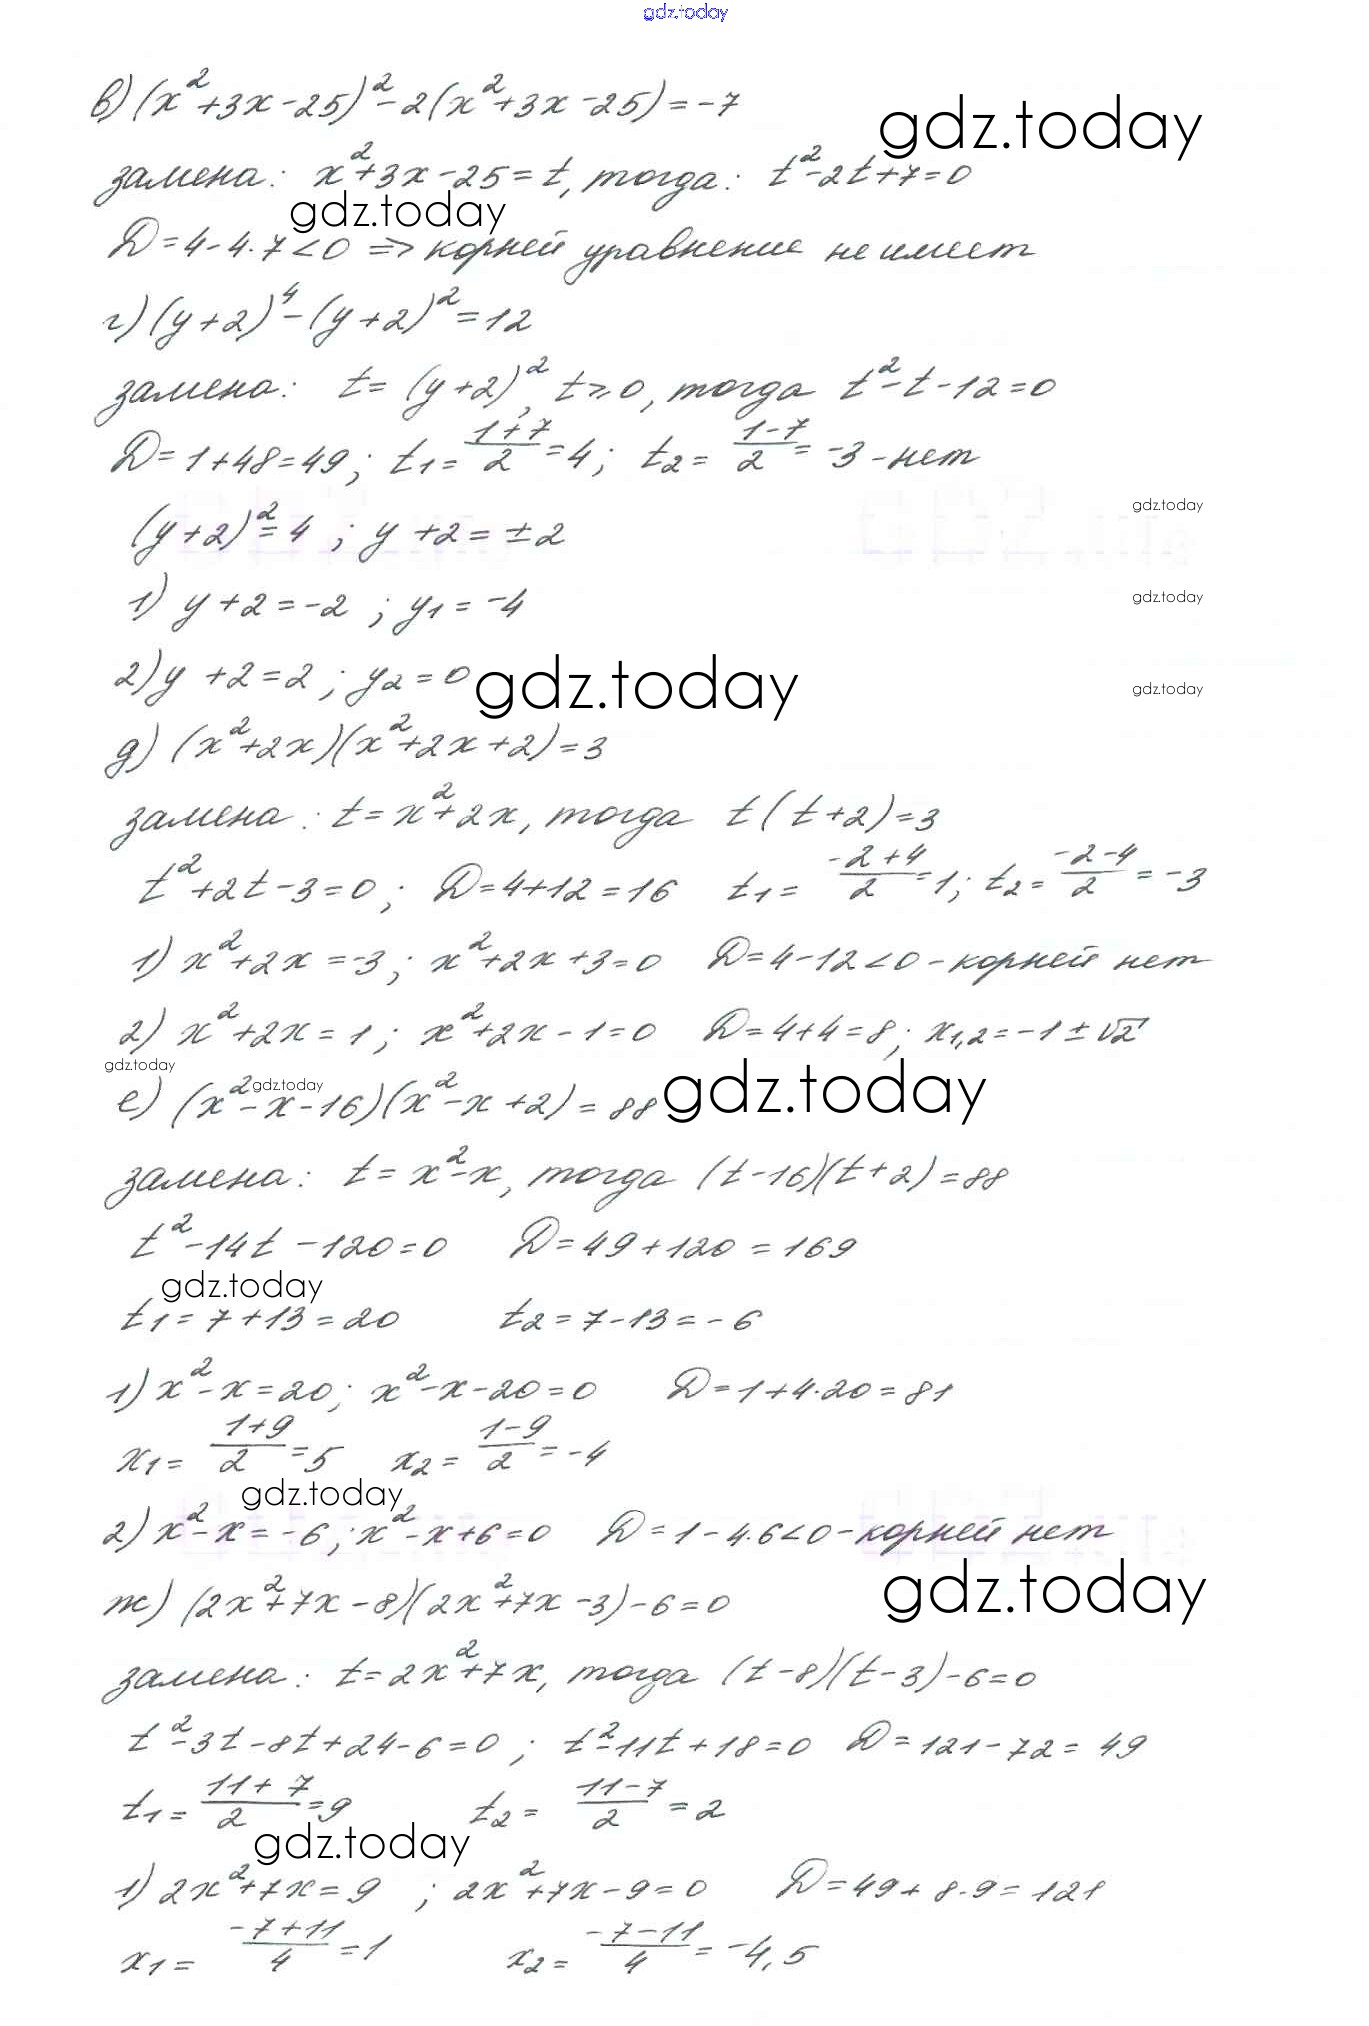 gdz.today
в) (x²+3x-25)²-2(x²+3x-25)=-7
gdz.today
замена: x²+3x-25=t, тогда: t²-2t+7=0
gdz.today
D=4-4·7<0 => корней уравнение не имеет
г) (y+2)⁴-(y+2)²=12
замена: t=(y+2)², t≥0, тогда t²-t-12=0
D=1+48=49; t1=(1+7)/2=4; t2=(1-7)/2=-3-нет
(y+2)²=4; y+2=±2
gdz.today
1) y+2=-2; y1=-4
gdz.today
2) y+2=2; y2=0
gdz.today
gdz.today
д) (x²+2x)(x²+2x+2)=3
замена: t=x²+2x, тогда t(t+2)=3
t²+2t-3=0; D=4+12=16 t1=(-2+4)/2=1; t2=(-2-4)/2=-3
1) x²+2x=-3; x²+2x+3=0 D=4-12<0-корней нет
2) x²+2x=1; x²+2x-1=0 D=4+4=8; x1,2=-1±√2
gdz.today
gdz.today
е) (x²-x-16)(x²-x+2)=88
gdz.today
замена: t=x²-x, тогда (t-16)(t+2)=88
t²-14t-120=0 D=49+120=169
gdz.today
t1=7+13=20 t2=7-13=-6
1) x²-x=20; x²-x-20=0 D=1+4·20=81
x1=(1+9)/2=5 x2=(1-9)/2=-4
gdz.today
2) x²-x=-6; x²-x+6=0 D=1-4·6<0-корней нет
gdz.today
ж) (2x²+7x-8)(2x²+7x-3)-6=0
замена: t=2x²+7x, тогда (t-8)(t-3)-6=0
t²-3t-8t+24-6=0; t²-11t+18=0 D=121-72=49
t1=(11+7)/2=9 t2=(11-7)/2=2
gdz.today
1) 2x²+7x=9; 2x²+7x-9=0 D=49+8·9=121
x1=(-7+11)/4=1 x2=(-7-11)/4=-4,5